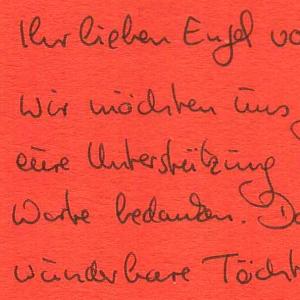 Ihr lieben Engel vo
wir möchten uns
eure Unterstützung
Worte bedanken. Da
wunderbare Töcht